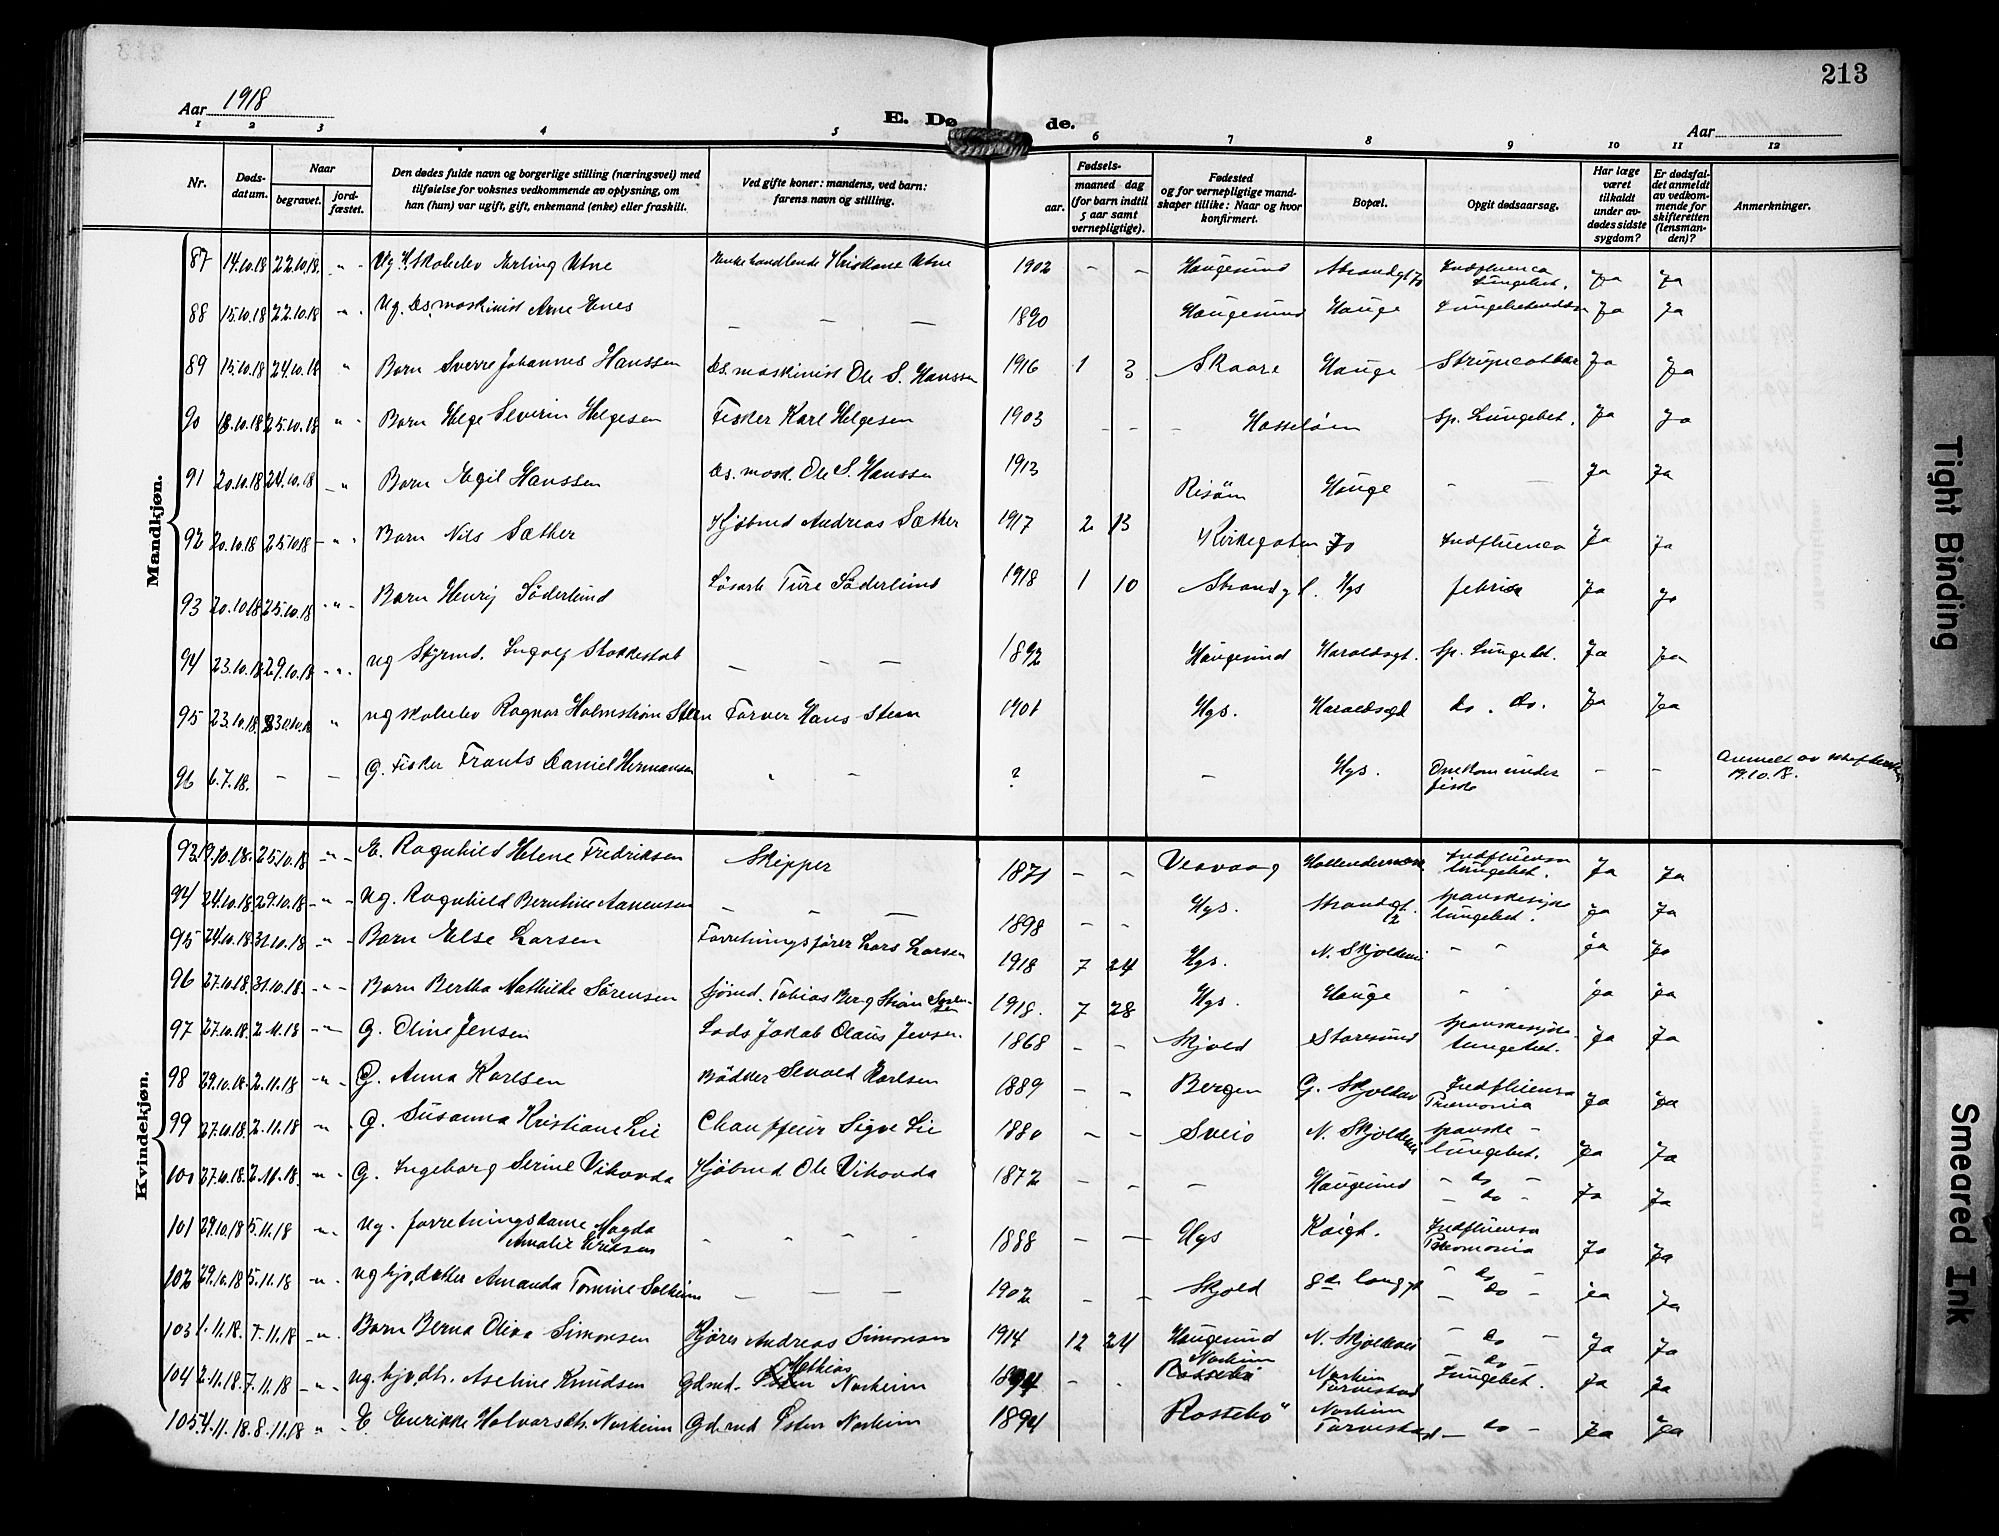 213
Aar 1918
E. Dø de.
Aar
1 2 3 4 5 6 7 8 9 10 11 12
Nr.
Døds-
datum.
Naar
begravet.
jord-
fæstet.
Den dødes fulde navn og borgerlige stilling (næringsvei) med
tilføielse for voksnes vedkommende av oplysning, om
han (hun) var ugift, gift, enkemand (enke) eller fraskilt.
Ved gifte koner: mandens, ved barn:
farens navn og stilling.
Fødsels-
aar.
maaned dag
(for barn indtil
5 aar samt
vernepligtige).
Fødested
og for vernepligtige mand-
skaper tillike: Naar og hvor
konfirmert.
Bopæl.
Opgit dødsaarsag.
Har læge
været
tilkaldt
under av-
dødes sidste
sygdom?
Er dødsfal-
det anmeldt
av vedkom-
mende for
skifteretten
(lensman-
den)?
Anmerkninger.
Mandkjøn.
87 14.10.18 22.10.18 - " - Ug. Skoleelev Erling Utne Enke handlende Kristiane Utne 1902 - - Haugesund Strandgt Indfluenca Lungebet. Ja Ja
88 15.10.18 22.10.18 - " - Ug. Ds. maskinist Arne Enes - - - 1890 Haugesund Hauge Lungebetendelse Ja Ja
89 15.10.18 24.10.18 " Barn Sverre Johannes Hanssen Ds. maskinist Ole S. Hanssen 1916 1 3 Skaare Hauge Ja Ja
90 18.10.18 25.10.18 - " - Barn Helge Severin Helgesen Fisker Karl Helgesen 1903 - - - Hasseløen Sp. Lungebet. Ja Ja
91 20.10.18 24.10.18 - " Barn Egil Hanssen Ds. mask. Ole S. Hanssen 1913 Risøen Hauge - - Ja Ja
92 20.10.18 25.10.18 - " - Barn Nils Sæther Kjøbmd Andreas Sæther 1917 2 13 Kirkegaten Indfluenca Ja Ja
93 20.10.18 25.10.18 - " - Barn Henry Söderlund Løsarb Ture Söderlund 1918 1 10 Strandgt. Hgs febrisa Ja Ja
94 23.10.18 29.10.18 - " - ug Styrmd. Ingolf Stokkestab - - - 1892 Haugesund Haraldsgt. Sp. Lungebet. Ja Ja
95 23.10.18 30.10.18 " ug skoleelev Ragnar Holmstrøm Steen Farver Hans Steen 1901 Hgs. Haraldsgt do. do. Ja Ja
96 6.7.18. - - G. Fisker Frants Daniel Hermansen " - ? - Hgs. Omkom under fiske - - Anmelt av skifteretten 19.10.18.
Kvindekjøn.
93 19.10.18. 25.10.18 - " - E. Ragnhild Helene Fredriksen Skipper 1871 - - Veavaag Indfluensa lungebet. Ja Ja
94 24.10.18 29.10.18 - " - Ug. Ragnhild Berntine Aanensen - - - 1898 - - Hgs. Strandgt. 2 spanskesyke lungebet. Ja Ja
95 24.10.18 31.10.18 - " - Barn Else Larsen Forretningsfører Lars Larsen 1918 7 24 Hgs. N. Skjoldavei - - Ja Ja
96 27.10.18. 31.10.18. - " - Barn Bertha Mathilde Sørensen sjømd. Tobias Berg Strøm Sørensen 1918. 7 28 Hgs. Hauge - - Ja Ja
97 27.10.18 2.11.18 - " - G. Oline Jensen Lods Jakob Olaus Jensen 1868 - - Skjold Storesund spanskesyke lungebet. Ja Ja
98 29.10.18. 2.11.18 - " - G. Anna Karlsen Bödker Sevald Karlsen 1889 - - Bergen G. Skjoldav Indfluensa Pneumonia Ja Ja
99 27.10.18. 2.11.18 - " G. Susanna Kristiane Lie Chauffeur Sigve Lie 1880 - - Sveio N. Skjoldavei spanske - lungebet. Ja Ja
100 27.10.18. 2.11.18. - " G. Ingeborg Serine Vikovda Kjøbmd Ole Vikovda 1872 - - - Haugesund - do - - do - Ja Ja
101 29.10.18 5.11.18 - " ug. forretningsdame Magda Amalie Eriksen - - - - 1888 - - Hgs Kaigt. Indfluensa Pneomonia Ja Ja
102 29.10.18 5.11.18 - " - ug hjv. datter Amanda Tomine Solheim - - - 1902 - - Skjold - do - - do - ja Ja
103 1.11.18. 7.11.18 - " - Barn Berna Oliva Simonsen Kjører Andreas Simonsen 1914 12 24 Haugesund N. Skjoldavei - do - Ja Ja
104 2.11.18. 7.11.18 - " - ug. hjv. dtr. Aseline Knudsen Gdmd. Mathias Norheim - - Norheim Norheim Torvestad do Lungebet. Ja Ja
105 4.11.18. 8.11.18 " - E. Enrikke Halvorsdtr. Norheim Gdmd Østen Norheim 1894 Rossebø" Norheim Torvestad - do - Ja Ja
Tight Binding
Smeared Ink